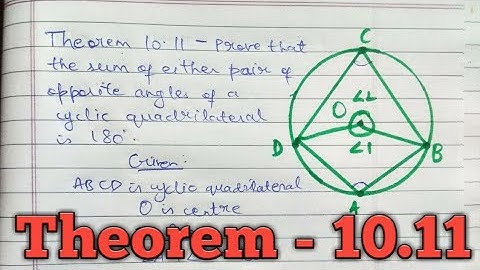 Theorem 10.11 - Prove that
the sum of either pair of
opposite angles of a
cyclic quadrilateral
is 180°.
Given:
ABCD is cyclic quadrilateral
O is centre
C
∠2
O
D
∠1
B
A
Theorem - 10.11